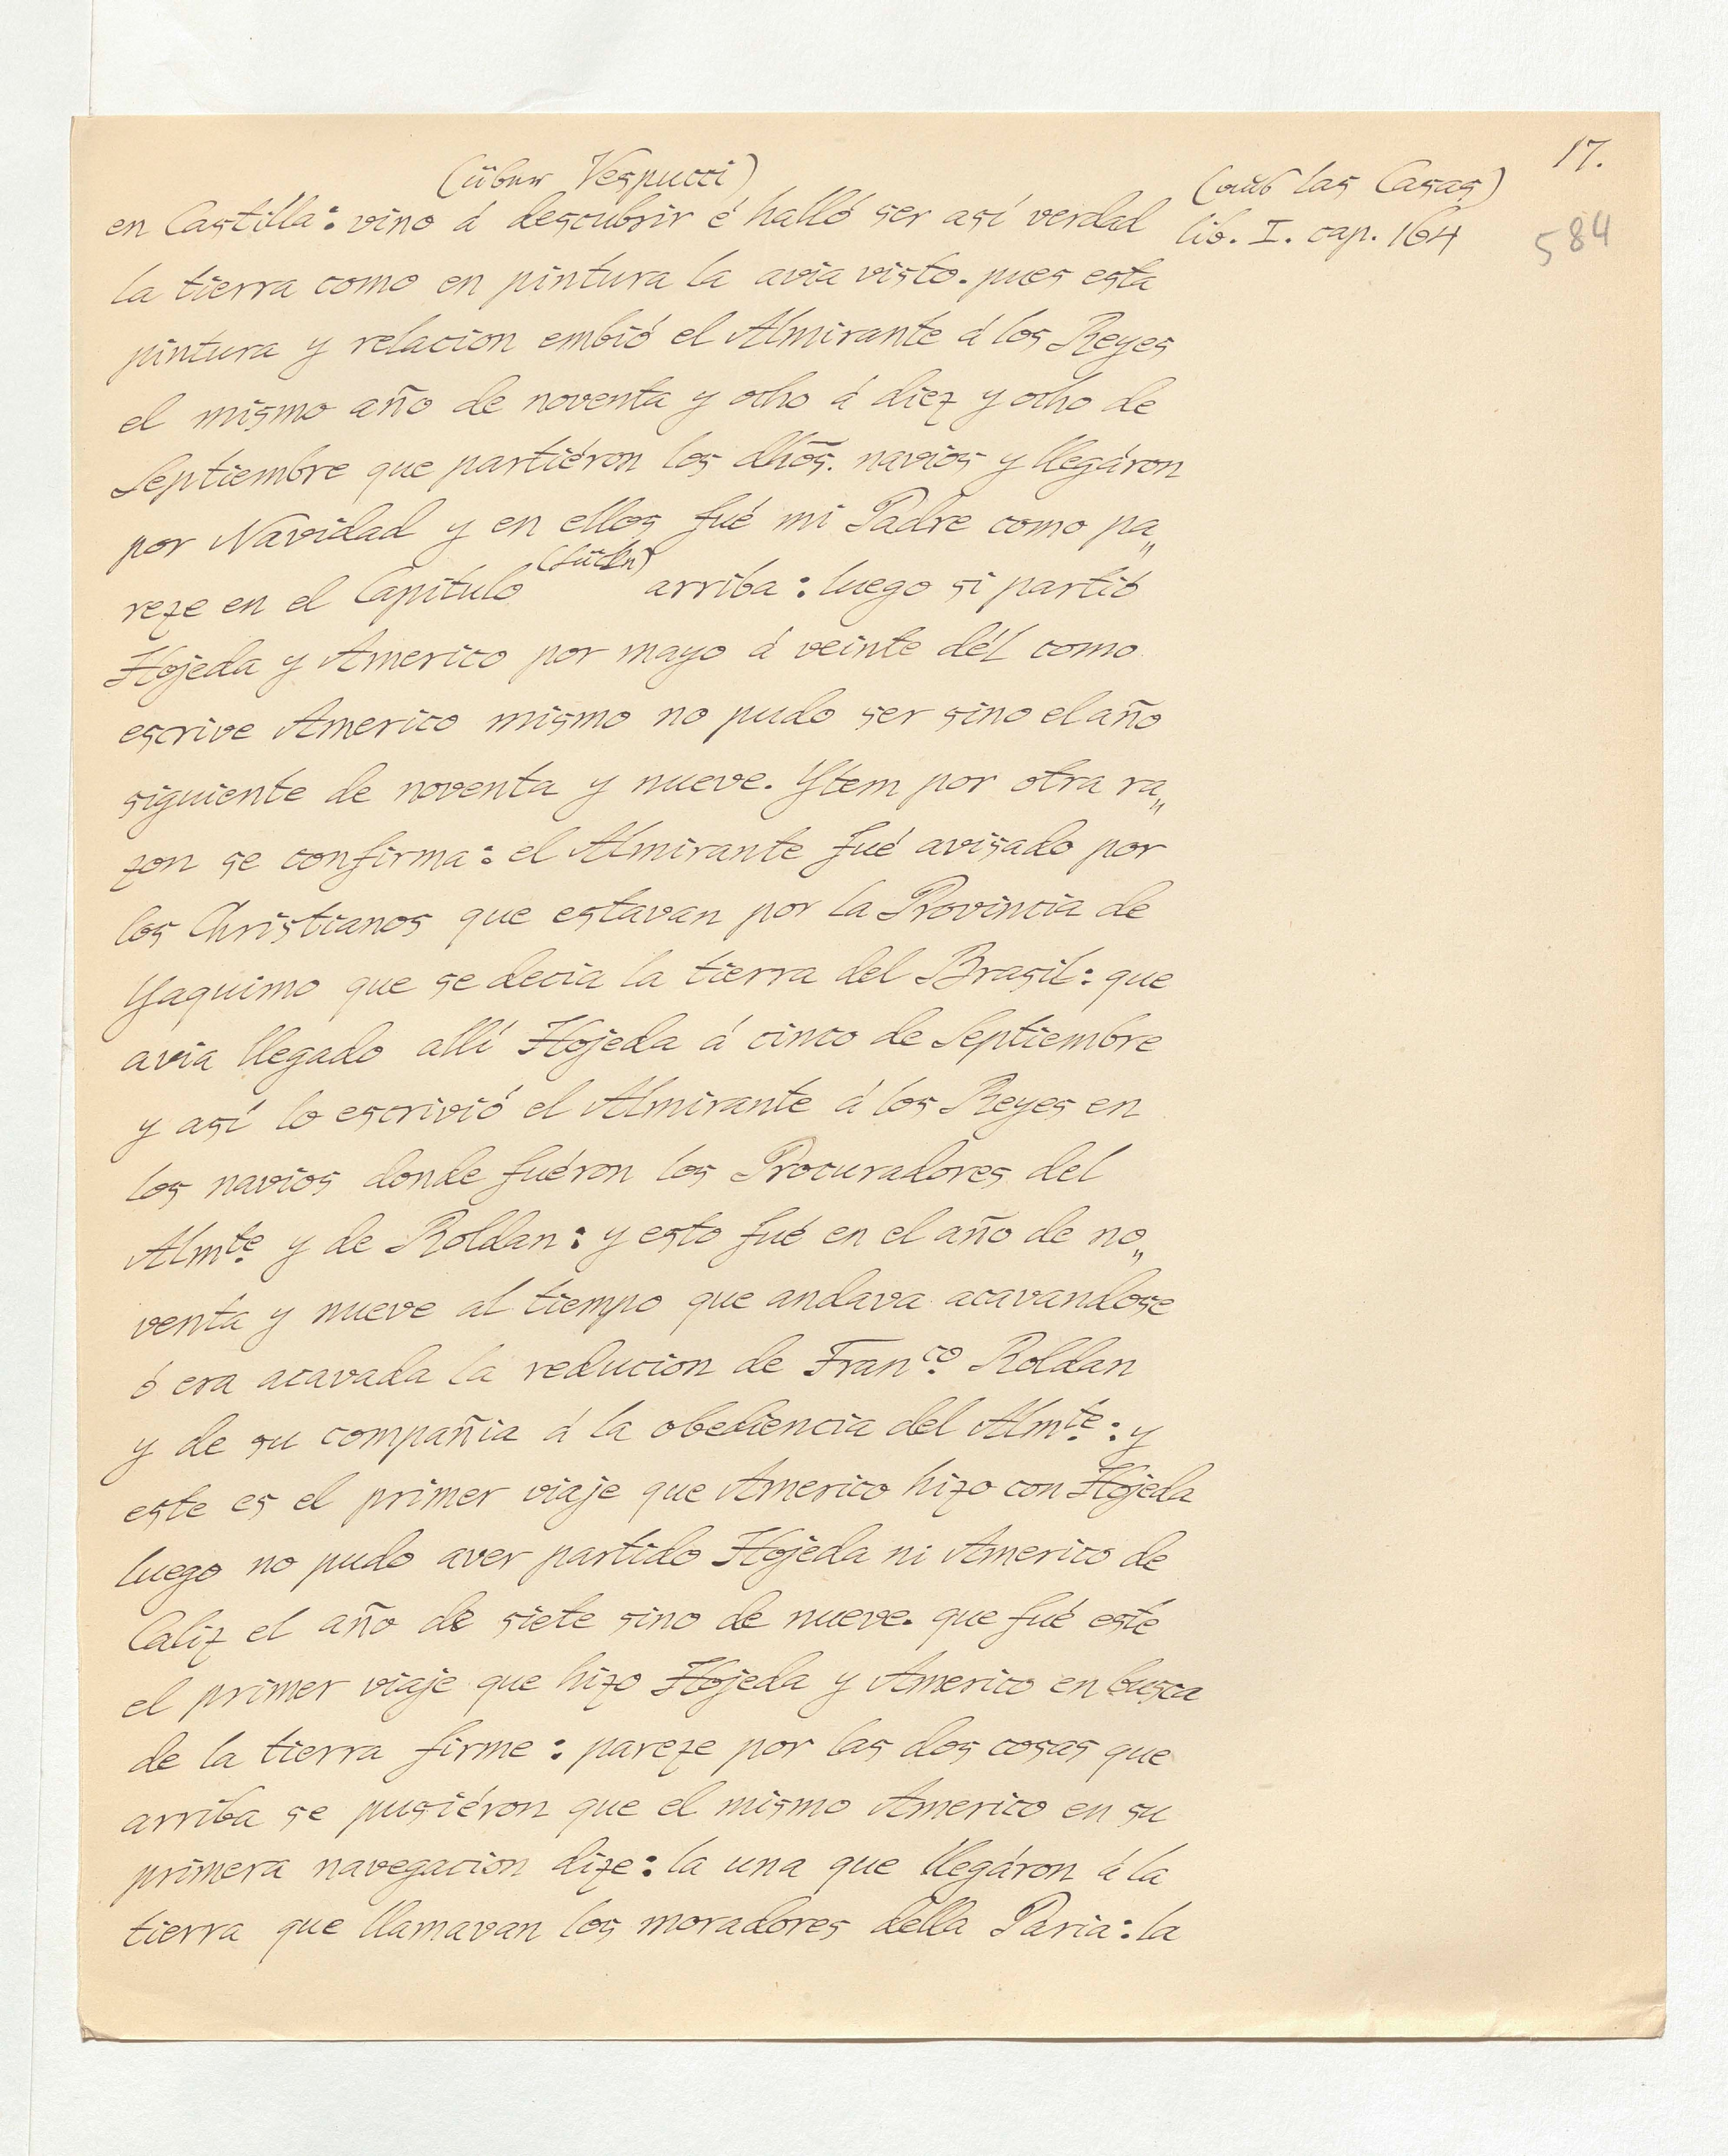 17.
(über Vespucci)
(aus las Casas)
en Castilla: vino á descubrir é halló ser así verdad
lib. I. cap. 164
584
la tierra como en pintura la avia visto. pues esta
pintura y relacion embió el Almirante á los Reyes
el mismo año de noventa y otho á diez y otho de
Septiembre que partiéron los dhõs. navios y llegáron
por Navidad y en ellos fué mi Padre como pa„
(Lücke)
reze en el Capítulo arriba: luego si partió
Hojeda y Americo por mayo á veinte dél como
escrive Americo mismo no pudo ser sino el año
siguiente de noventa y nueve. Ytem por otra ra„
zon se confirma: el Almirante fué avisado por
los Christianos que estavan por la Provincia de
Yaquimo que se decia la tierra del Brasil: que
avia llegado allí Hojeda á cinco de Septiembre
y así lo escrivió el Almirante á los Reyes en
los navios donde fuéron los Procuradores del
Almte. y de Roldan: y esto fué en el año de no„
venta y nueve al tiempo que andava acavandose
ó era acavada la reducion de Franco. Roldan
y de su compañia á la obediencia del Almte.: y
este es el primer viaje que Americo hizo con Hojeda
luego no pudo aver partido Hojeda ni Americo de
Caliz el año de siete sino de nueve. que fué esté
el primer viaje que hizo Hojeda y Americo en busca
de la tierra firme: pareze por las dos cosas que
arriba se pusiéron que el mismo Americo en su
primera navegacion dize: la una que llegáron á la
tierra que llamavan los moradores della Paria: la